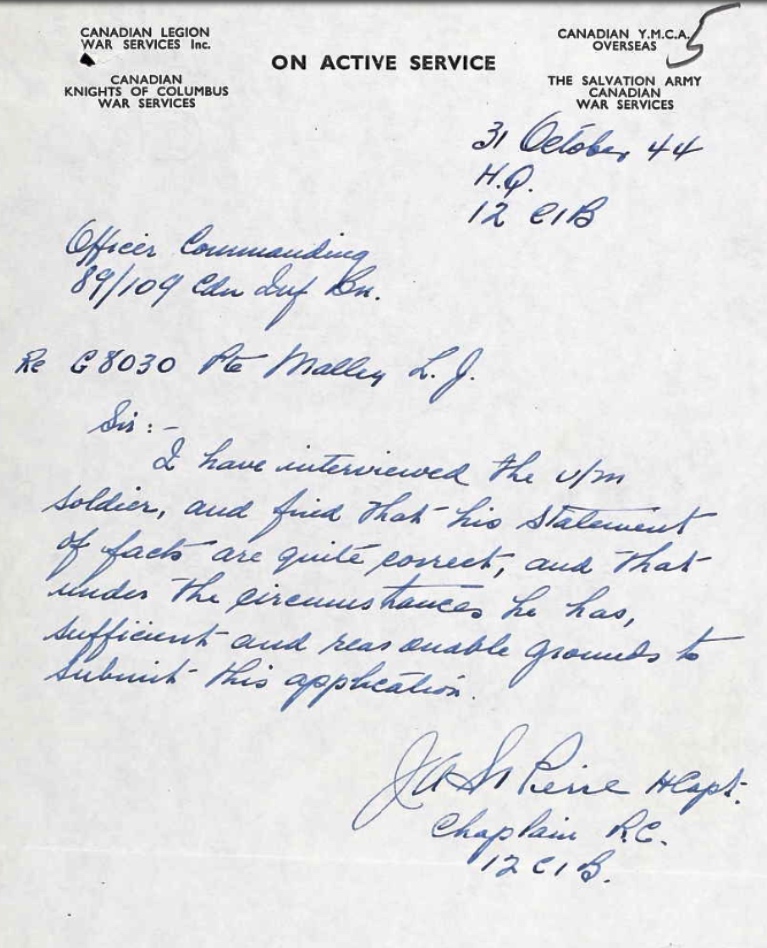 CANADIAN LEGION
WAR SERVICES Inc.
CANADIAN
KNIGHTS OF COLUMBUS
WAR SERVICES
ON ACTIVE SERVICE
CANADIAN Y.M.C.A.
OVERSEAS
THE SALVATION ARMY
CANADIAN
WAR SERVICES
5
31 October 44
H.Q.
12 CIB
Officer Commanding
89/109 Cdn Inf Bn.
Re G 8030 Pte Malley L. J.
Sir:-
I have interviewed the v/m
soldier, and find that his statement
of facts are quite correct, and that
under the circumstances he has,
sufficient and reasonable grounds to
submit this application.
J A St Pierre H/Capt.
Chaplain R.C.
12 CIB.